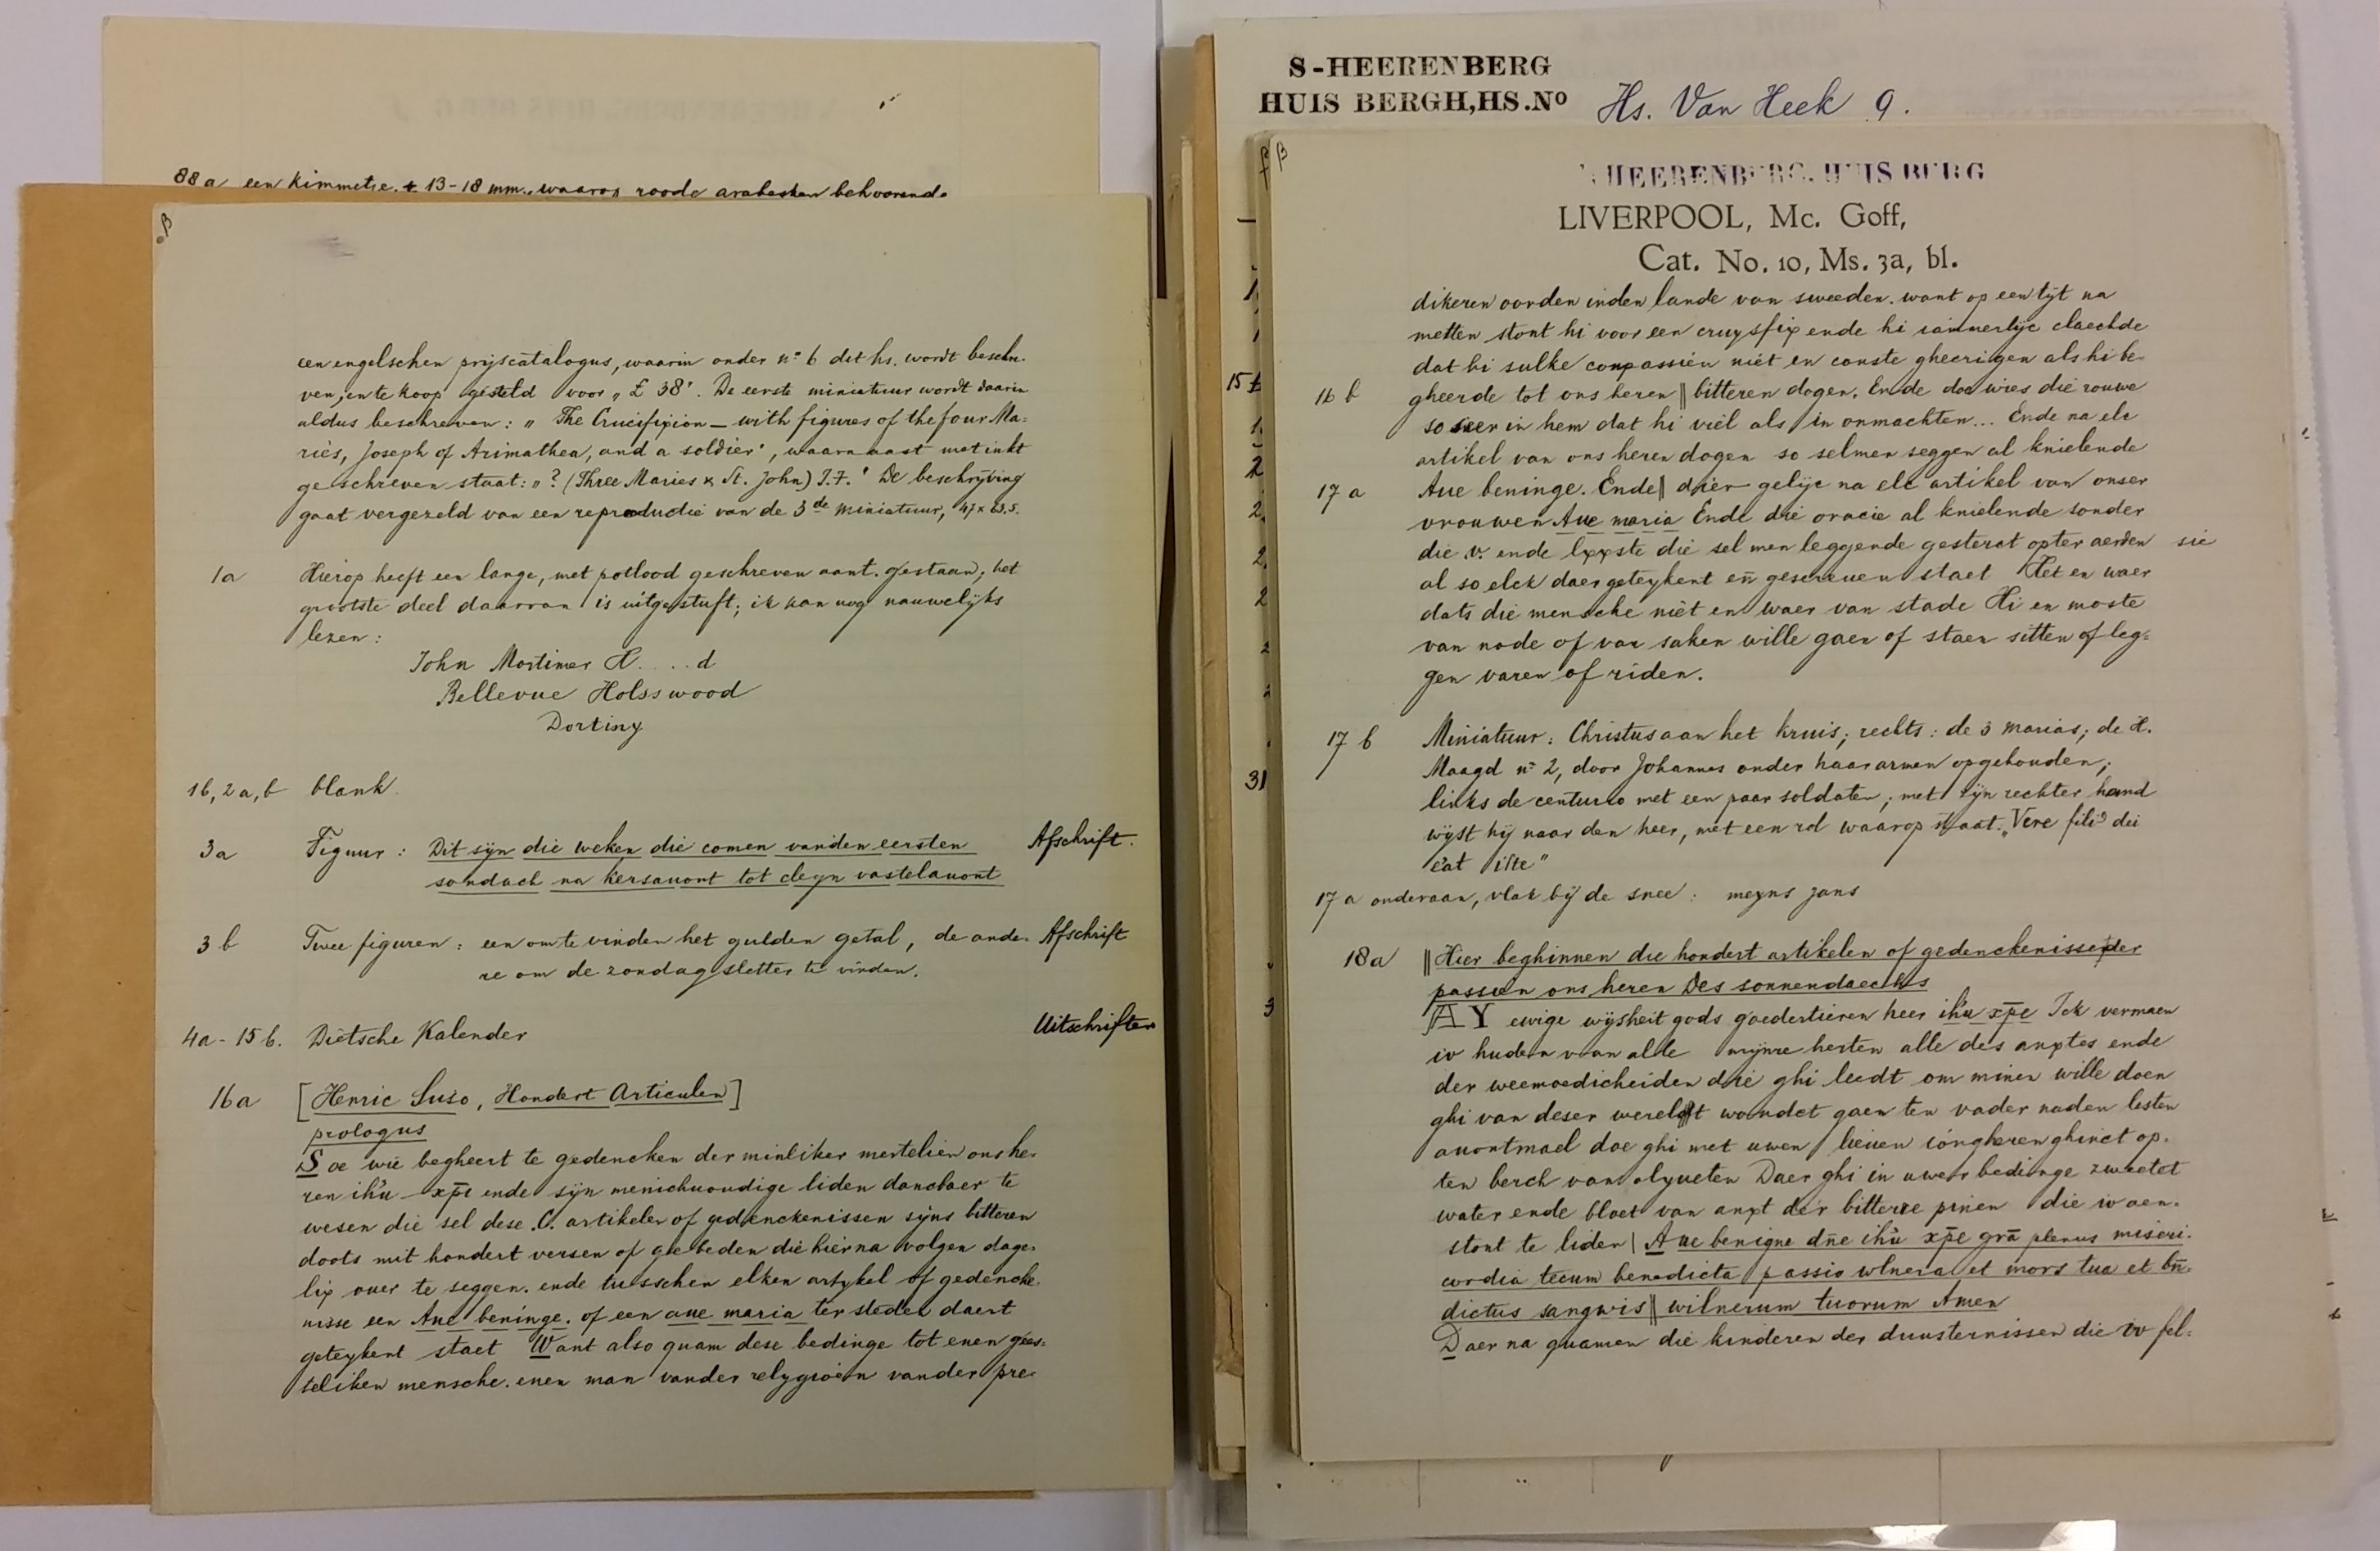 88a een kimmetje ± 13-18 mm., waarop roode arabesken behoorende
een engelschen prijscatalogus, waarin onder nº 6 dit hs. wordt beschre-
ven, en te koop gesteld voor „£ 38". De eerste miniatuur wordt daarin
aldus beschreven: „The Crucifixion — with figures of the four Ma-
ries, Joseph of Arimathea, and a soldier", waarnaast met inkt
geschreven staat: „? (Three Maries & St. John) J.F." De beschrijving
gaat vergezeld van een reproductie van de 3de miniatuur, 47 x 63.5.
1a Hierop heeft een lange, met potlood geschreven aant. gestaan; het
grootste deel daarvan is uitgestuft; ik kan nog nauwelijks
lezen:
John Mortimer H.....d
Bellevue Holsswood
Dortiny
1b, 2a, b blank.
3a Figuur: Dit sijn die weken die comen vanden eersten Afschrift.
sondach na kersauont tot cleyn vastelauont
3b Twee figuren: een om te vinden het gulden getal, de ande- Afschrift
re om de zondagsletter te vinden.
4a-15b. Dietsche Kalender Uitschriften
16a [Henric Suso, Hondert Articulen]
prologus
Soe wie begheert te gedencken der minliker martelien ons he-
ren ihu xpi ende sijn menichuoudige liden dancbaer te
wesen die sel dese .C. artikelen of gedenckenissen sijns bitteren
doots mit hondert versen of gebeden die hierna volgen dage-
lix ouer te seggen. ende tusschen elken artykel of gedencke-
nisse een Aue beninge. of een aue maria ter steden daert
geteykent staet Want also quam dese bedinge tot enen gees-
teliken mensche. enen man vander relygioen vander pre-
S-HEERENBERG
HUIS BERGH, HS. Nº Hs. Van Heek 9.
'S HEERENBERG. HUIS BERG
LIVERPOOL, Mc. Goff,
Cat. No. 10, Ms. 3a, bl.
dikeren oorden inden lande van sweeden. want op een tijt na
metten stont hi voor een cruysfix ende hi iammerlijc claechde
dat hi sulke conpassien niet en conste ghecrigen als hi be-
16b gheerde tot ons heren || bitteren dogen. Ende doe wies die rouwe
so seer in hem dat hi viel als in onmachten... Ende na elc
artikel van ons heren dogen so selmen seggen al knielende
17a Aue beninge. Ende || dier gelijc na elc artikel van onser
vrouwen Aue maria Ende die oracie al knielende sonder
die .v. ende lxxste die sel men leggende gestrect opter aerden sie
al so elck daer geteykent en̄ gescreuen staet Het en waer
dats die mensche niet en waer van stade Hi en moste
van node of van saken wille gaen of staen sitten of leg-
gen varen of riden.
17b Miniatuur: Christus aan het kruis; rechts: de 3 Marias; de H.
Maagd nº 2, door Johannes onder haar armen opgehouden;
links de centurio met een paar soldaten; met zijn rechter hand
wijst hij naar den heer, met een rol waarop staat. „Vere filiꝰ dei
e'at iste"
17a onderaan, vlak bij de snee: meyns jans
18a || Hier beghinnen die hondert artikelen of gedenckenisse der
passien ons heren Des sonnendaechs
AY ewige wijsheit gods goedertieren heer ihu xpe Ick vermaen
iv huden van alle mijnre herten alle des anxtes ende
der weemoedicheiden die ghi leedt om minen wille doen
ghi van deser werelt woudet gaen ten vader naden lesten
auontmael doe ghi met uwen lieuen iongheren ghinct op-
ten berch van olyueten Daer ghi in uwer bedinge zweetet
water ende bloet van anxt der bitterre pinen die iv aen-
stont te liden | Aue benigne dn̄e ihu xp̄e grā plenus miseri-
cordia tecum benedicta passio wlnera et mors tua et bn̄e-
dictus sangwis || wlnerum tuorum Amen
Daer na quamen die kinderen der duusternissen die iv fel-